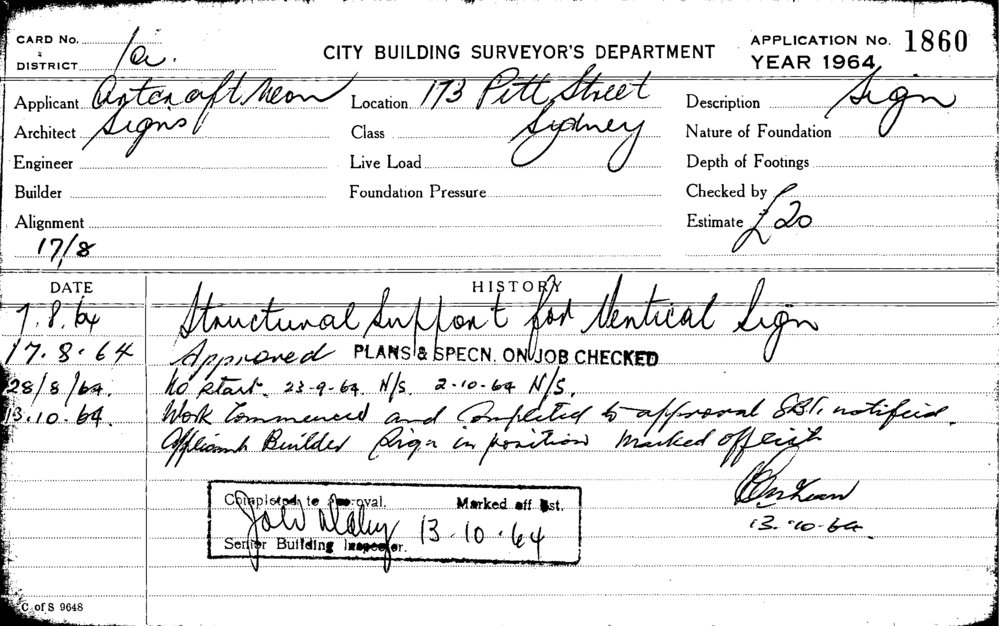 CARD No. 1a.
DISTRICT
CITY BUILDING SURVEYOR'S DEPARTMENT
APPLICATION No. 1860
YEAR 1964
Applicant Artcraft Neon
Location 173 Pitt Street
Description Sign
Architect Signs
Class Sydney
Nature of Foundation
Engineer
Live Load
Depth of Footings
Builder
Foundation Pressure
Checked by
Alignment
Estimate £20
17/8
DATE
HISTORY
7.8.64 Structural Support for Vertical Sign
17.8.64 Approved PLANS & SPECN. ON JOB CHECKED
28/8/64. No start. 23-9-64. N/S. 2-10-64 N/S.
13.10.64. Work Commenced and Completed to approval notified
Builder Sign in position marked off
13.10.64.
Completed to approval. Marked off
13.10.64
Senior Building Inspector.
C of S 9648